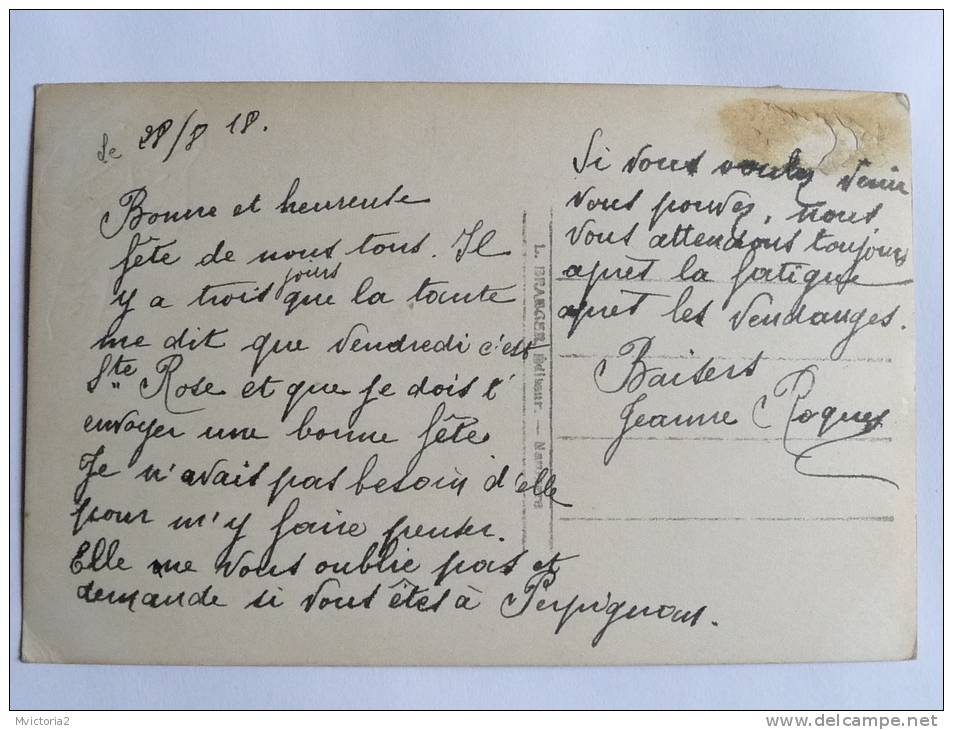 le 28/8 18.
Bonne et heureuse
fête de nous tous. Il
y a trois jours que la tante
me dit que vendredi c'est
Ste Rose et que je dois t'
envoyer une bonne fête
Je n'avais pas besoin d'elle
pour m'y faire penser.
Elle ne vous oublie pas et
demande si vous êtes à Perpignan.
Si vous voulez venir
vous pouvez, nous
vous attendons toujours
après la fatigue
après les vendanges.
Baisers
Jeanne Roques
L. BRANGER, Editeur. —
Mvictoria2
www.delcampe.net